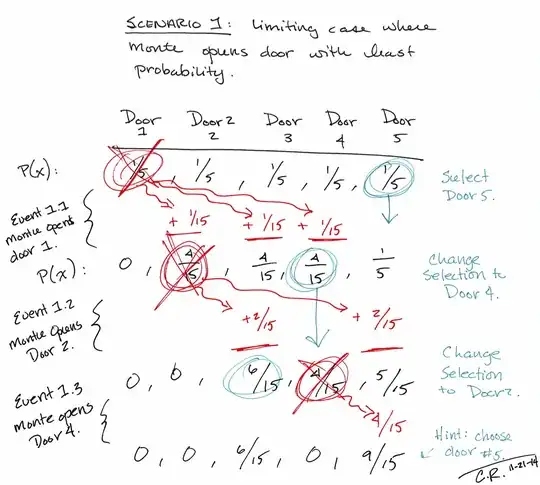 SCENARIO 1: Limiting case where
monte opens door with least
probability.
Door 1 Door 2 2 Door 3 Door 4 Door 5
P(x): 1/5, 1/5, 1/5, 1/5, 1/5 Select Door 5.
Event 1.1
monte opens
door 1.
+ 1/15 + 1/15 + 1/15
P(x): 0, 4/5, 4/15, 4/15, 1/5 Change
Selection to
Door 4.
Event 1.2
monte opens
Door 2.
+2/15 + 2/15
0, 0, 6/15, 4/15, 5/15 Change
Selection
to Door
Event 1.3
monte opens
Door 4.
4/15
0, 0, 6/15, 0, 9/15 Hint: choose
door #5.
C.R. 11-21-14